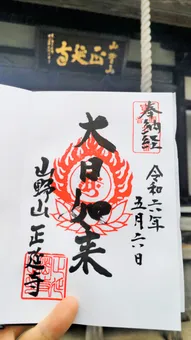 山野山
正延寺
奉納経
令和六年
五月六日
大日如来
山野山 正延寺